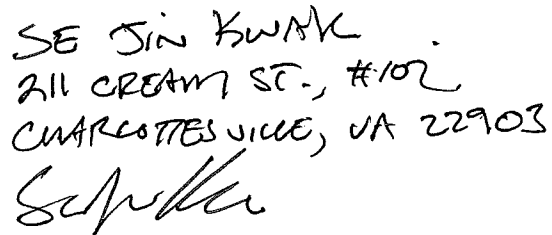 SE JIN KWAK
211 CREAM ST., #102
CHARLOTTESVILLE, VA 22903